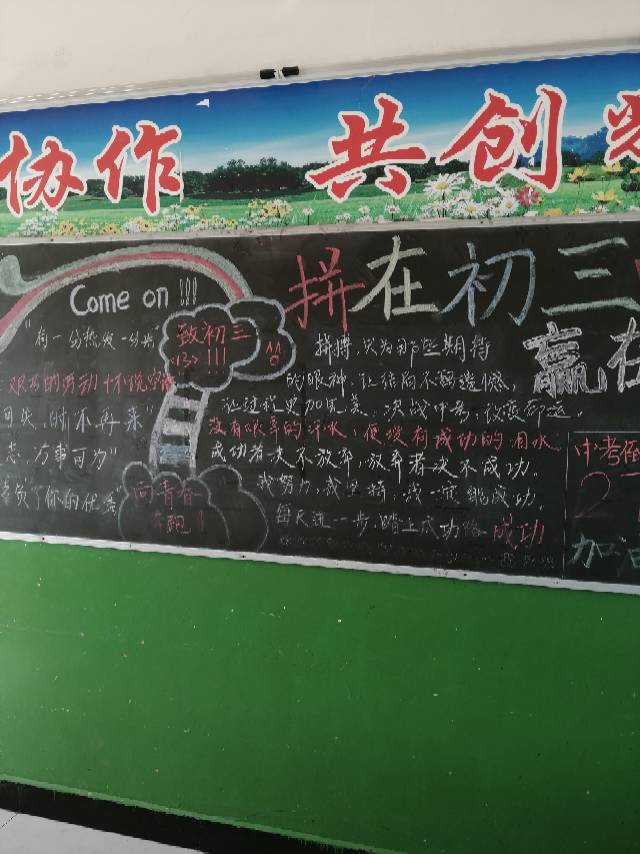 协作 共创
Come on !!!
拼在初三
赢在
"有一分热发一分光"
致初三
<13> !!!
拼搏,只为那些期待
的眼神,让结局不留遗憾,
让过程更加完美,决战中考,改变命运。
没有艰辛的汗水,便没有成功的泪水
成功者决不放弃,放弃者决不成功。
我努力,我坚持,我一定能成功。
每天进一步,踏上成功路 成功
时不再来"
万事可为"
了你的优秀"
向青春
奔跑!
中考倒
2
加油